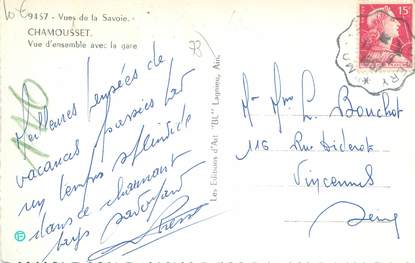 10€
9457 - Vues de la Savoie. -
CHAMOUSSET.
Vue d'ensemble avec la gare
73
15F
Meilleures pensées de
vacances passées par
un temps splendide
dans ce charmant
pays savoyard
Les Editions d'Art "BL" Lagnieu, Ain.
M. Mme L. Bouchot
116 Rue Diderot
Vincennes
Seine